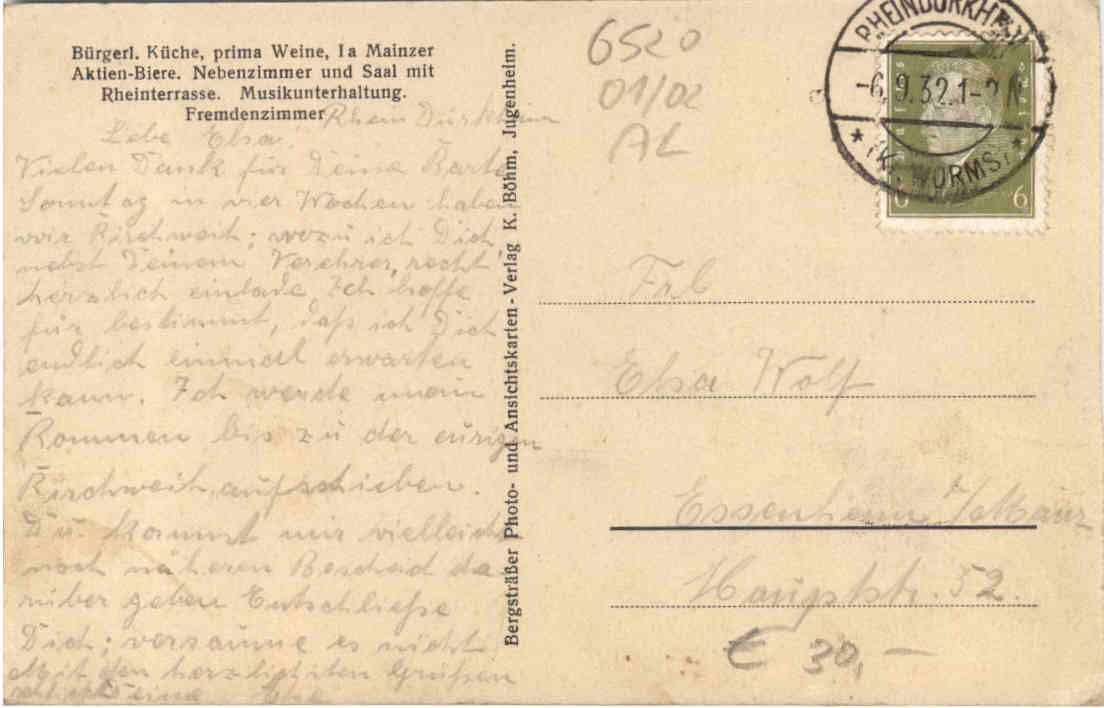 Bürgerl. Küche, prima Weine, Ia Mainzer
Aktien-Biere. Nebenzimmer und Saal mit
Rheinterrasse. Musikunterhaltung.
Fremdenzimmer
Rhein Dürkheim
Liebe Elsa!
Vielen Dank für Deine Karte
Sonntag in vier Wochen haben
wir Kirchweih; wozu ich Dich
nebst Deinem Verehrer, recht
herzlich einlade. Ich hoffe
für bestimmt, daß ich Dich
endlich einmal erwarten
kann. Ich werde mein
Kommen bis zu der eurigen
Kirchweih aufschieben.
Du kannst mir vielleicht
noch näheren Bescheid da-
rüber geben Entschließe
Dich; versäume es nicht
Mit den herzlichsten Grüßen
Deine Else
Bergsträßer Photo- und Ansichtskarten-Verlag K. Böhm, Jugenheim.
6520
01/02
AL
RHEINDÜRKHEIM
-6.9.32.1-2N
* (KR. WORMS) *
6 6
Frl
Elsa Wolf
Essenheim b/Mainz
Hauptstr. 52.
€ 30,-